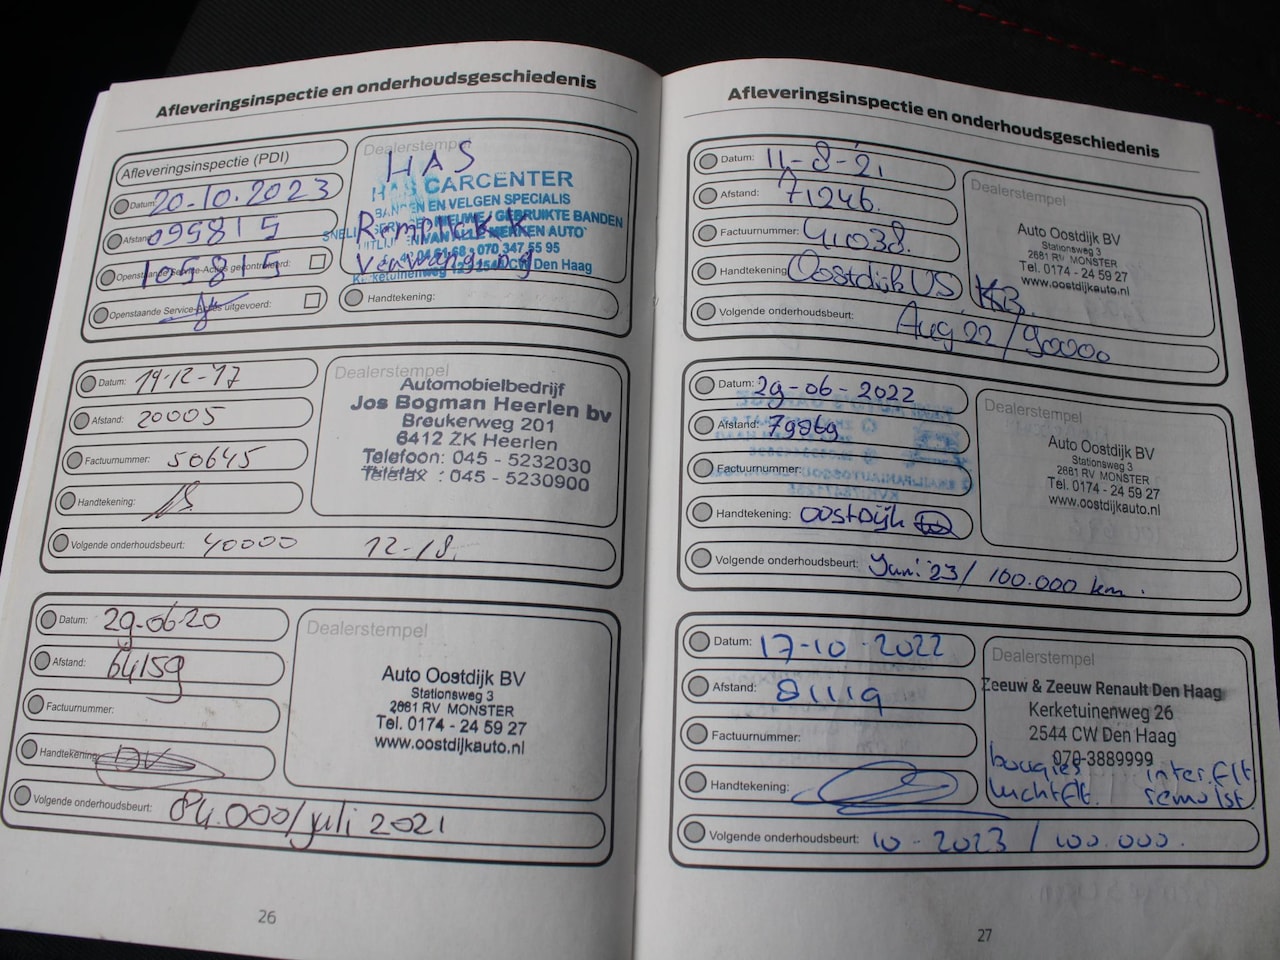 Afleveringsinspectie en onderhoudsgeschiedenis
Afleveringsinspectie (PDI)
Datum: 20-10.2023
Afstand: 095815
Openstaande Service-Acties gecontroleerd: 105815
Openstaande Service-Acties uitgevoerd:
Dealerstempel
HAS
HAS CARCENTER
BANDEN EN VELGEN SPECIALIS
NIEUWE / GEBRUIKTE BANDEN
VAN ALLE MERKEN AUTO
070 347 55 95
2544 CW Den Haag
Handtekening:
Datum: 19-12-17
Afstand: 20005
Factuurnummer: 50645
Handtekening:
Volgende onderhoudsbeurt: 40000 12-18.
Dealerstempel
Automobielbedrijf
Jos Bogman Heerlen bv
Breukerweg 201
6412 ZK Heerlen
Telefoon: 045 - 5232030
Telefax : 045 - 5230900
Datum: 29-06-20
Afstand: 64159
Factuurnummer:
Handtekening:
Volgende onderhoudsbeurt: 84.000/juli 2021
Dealerstempel
Auto Oostdijk BV
Stationsweg 3
2681 RV MONSTER
Tel. 0174 - 24 59 27
www.oostdijkauto.nl
26
Afleveringsinspectie en onderhoudsgeschiedenis
Datum: 11-8-'21
Afstand: 71246.
Factuurnummer: 41038.
Handtekening: Oostdijk US KB.
Volgende onderhoudsbeurt: Aug 22/90000
Dealerstempel
Auto Oostdijk BV
Stationsweg 3
2681 RV MONSTER
Tel. 0174 - 24 59 27
www.oostdijkauto.nl
Datum: 29-06-2022
Afstand: 79869
Factuurnummer:
Handtekening: oostdijk
Volgende onderhoudsbeurt: Juni 23/ 100.000 km.
Dealerstempel
Auto Oostdijk BV
Stationsweg 3
2681 RV MONSTER
Tel. 0174 - 24 59 27
www.oostdijkauto.nl
Datum: 17-10-2022
Afstand: 81119
Factuurnummer:
Handtekening:
Volgende onderhoudsbeurt: 10-2023 / 100.000.
Dealerstempel
Zeeuw & Zeeuw Renault Den Haag
Kerketuinenweg 26
2544 CW Den Haag
070-3889999
bougies inter.flt
luchtflt. remolst
27